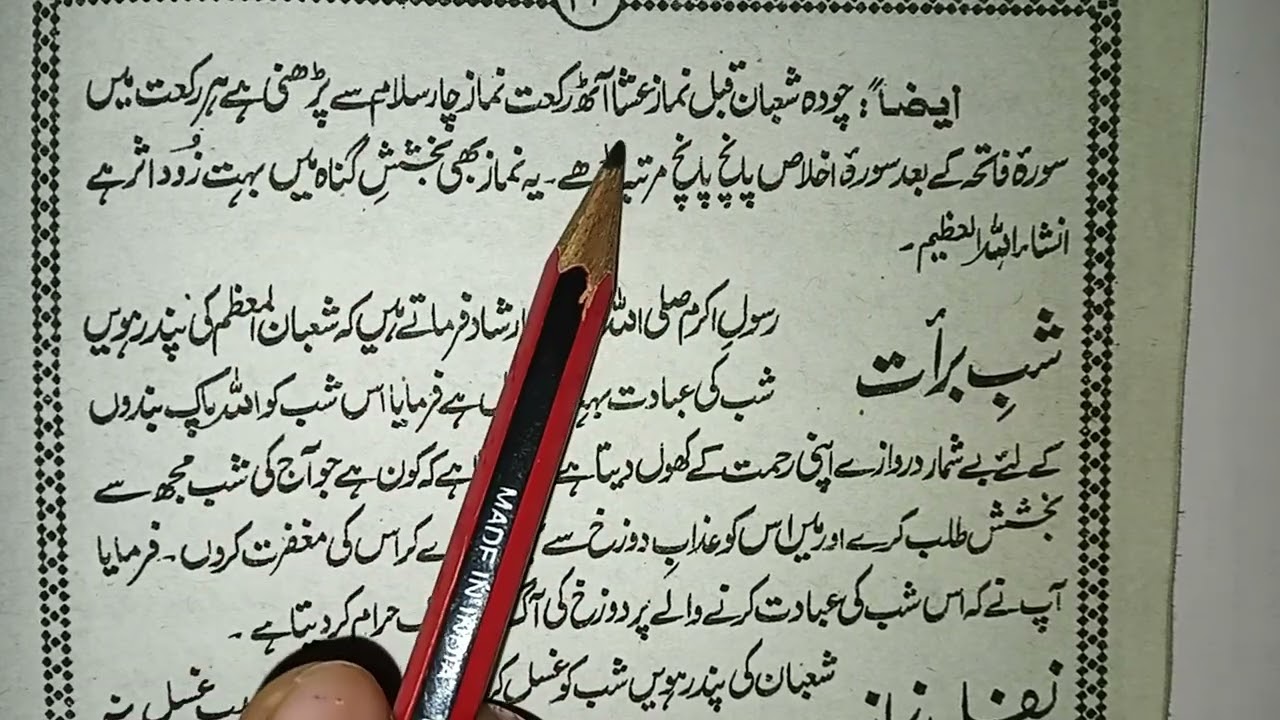 ایضاً: چودہ شعبان قبل نماز عشا آٹھ رکعت نماز چار سلام سے پڑھنی ہے ہر رکعت میں
سورۂ فاتحہ کے بعد سورۂ اخلاص پانچ پانچ مرتبہ ھے۔ یہ نماز بھی بخششِ گناہ میں بہت زُود اثر ہے
انشاء اللہ العظیم۔
شبِ برأت
رسولِ اکرم صلی اللہ ارشاد فرماتے ہیں کہ شعبان المعظم کی پندرہویں
شب کی عبادت ہے فرمایا اس شب کو اللہ پاک بندوں
کے لئے بے شمار دروازے اپنی رحمت کے کھول دیتا ہے ہے کہ کون ہے جو آج کی شب مجھ سے
بخشش طلب کرے اور میں اس کو عذابِ دوزخ سے کر اس کی مغفرت کروں۔ فرمایا
آپ نے کہ اس شب کی عبادت کرنے والے پر دوزخ کی آگ حرام کر دیتا ہے۔
نفل نماز
شعبان کی پندرہویں شب کو غسل غسل
MADE IN INDIA